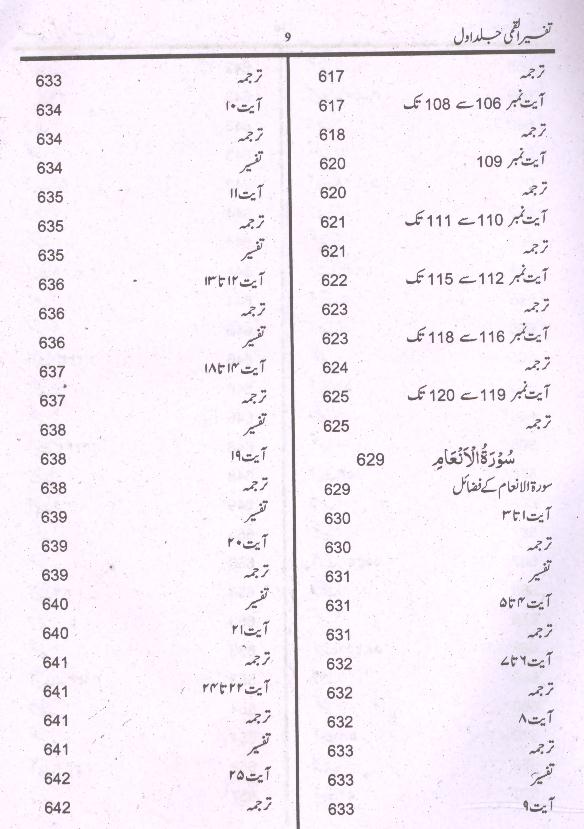 تفسیر القمی جلد اول 9
ترجمہ 617
آیت نمبر 106 سے 108 تک 617
ترجمہ 618
آیت نمبر 109 620
ترجمہ 620
آیت نمبر 110 سے 111 تک 621
ترجمہ 621
آیت نمبر 112 سے 115 تک 622
ترجمہ 623
آیت نمبر 116 سے 118 تک 623
ترجمہ 624
آیت نمبر 119 سے 120 تک 625
ترجمہ 625
سُوْرَۃُ الْاَنْعَامِ 629
سورۃ الانعام کے فضائل 629
آیت ۱ تا ۳ 630
ترجمہ 630
تفسیر 631
آیت ۴ تا ۵ 631
ترجمہ 631
آیت ۶ تا ۷ 632
ترجمہ 632
آیت ۸ 632
ترجمہ 633
تفسیر 633
آیت ۹ 633
ترجمہ 633
آیت ۱۰ 634
ترجمہ 634
تفسیر 634
آیت ۱۱ 635
ترجمہ 635
تفسیر 635
آیت ۱۲ تا ۱۳ 636
ترجمہ 636
تفسیر 636
آیت ۱۴ تا ۱۸ 637
ترجمہ 637
تفسیر 638
آیت ۱۹ 638
ترجمہ 638
تفسیر 639
آیت ۲۰ 639
ترجمہ 639
تفسیر 640
آیت ۲۱ 640
ترجمہ 641
آیت ۲۲ تا ۲۴ 641
ترجمہ 641
تفسیر 641
آیت ۲۵ 642
ترجمہ 642